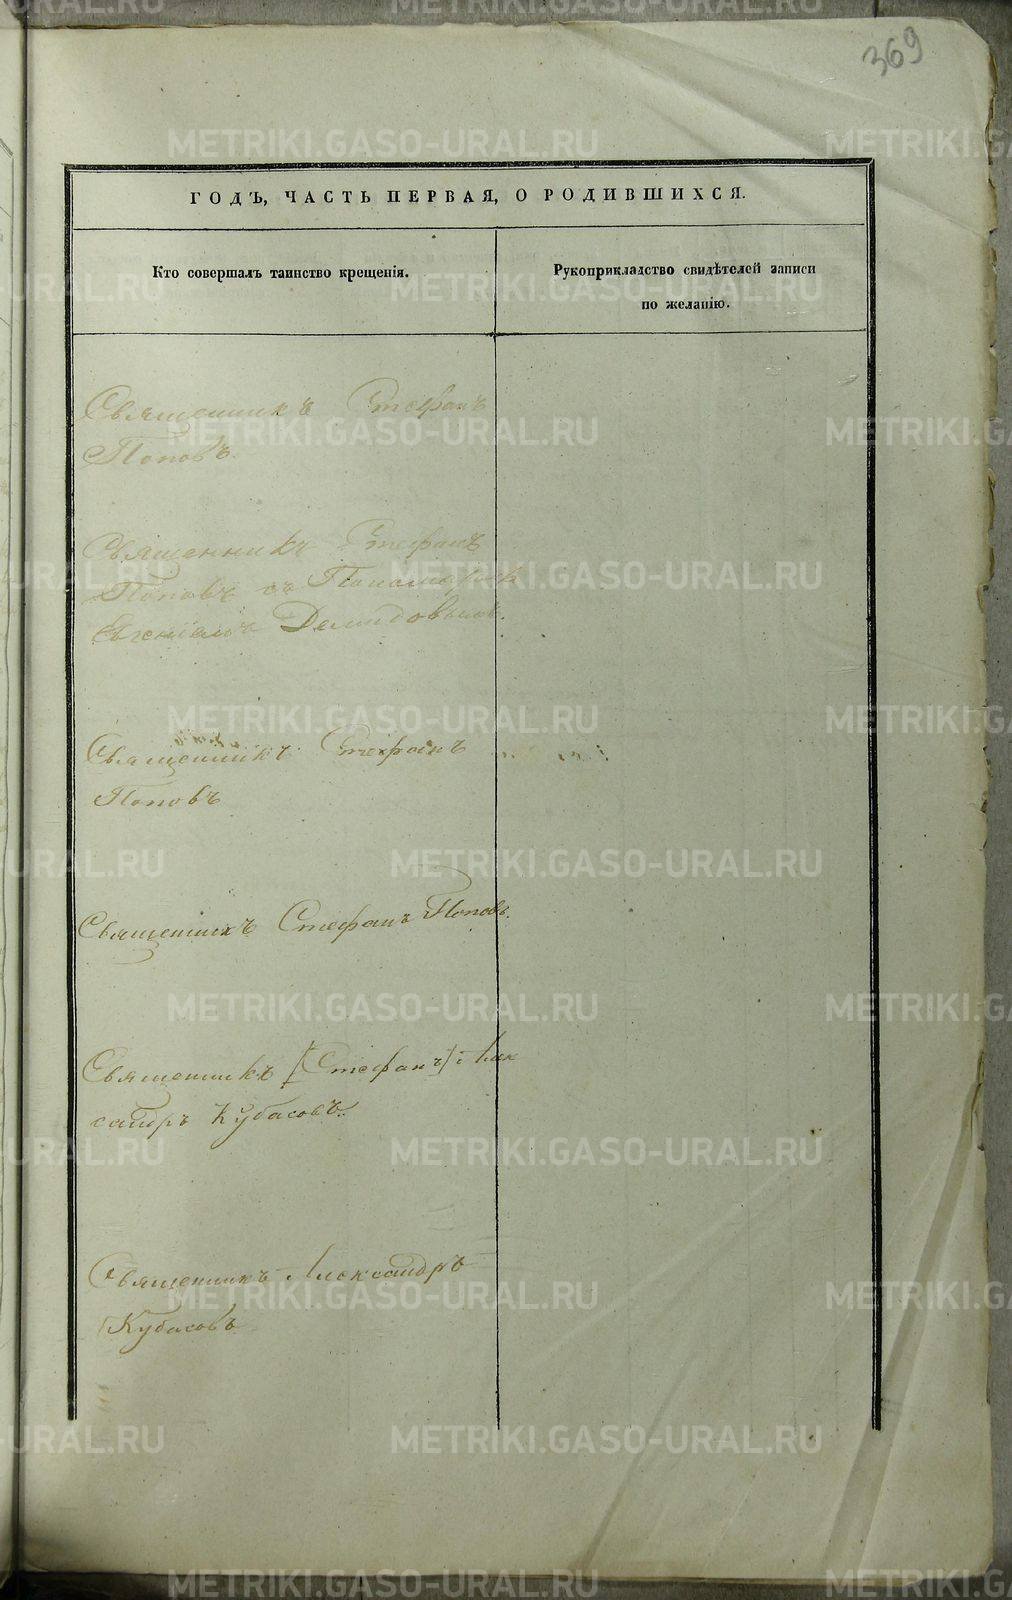 369
ГОДЪ, ЧАСТЬ ПЕРВАЯ, О РОДИВШИХСЯ.
Кто совершалъ таинство крещенія.
Рукоприкладство свидѣтелей записи
по желанію.
Священникъ Стефанъ
Поповъ.
Священникъ Стефанъ
Поповъ съ Пономаремъ
Евгеніемъ Демидовымъ.
Священникъ Стефанъ
Поповъ
Священникъ Стефанъ Поповъ.
Священникъ [Стефанъ] Алек
сандръ Кубасовъ.
Священникъ Александръ
Кубасовъ
METRIKI.GASO-URAL.RU